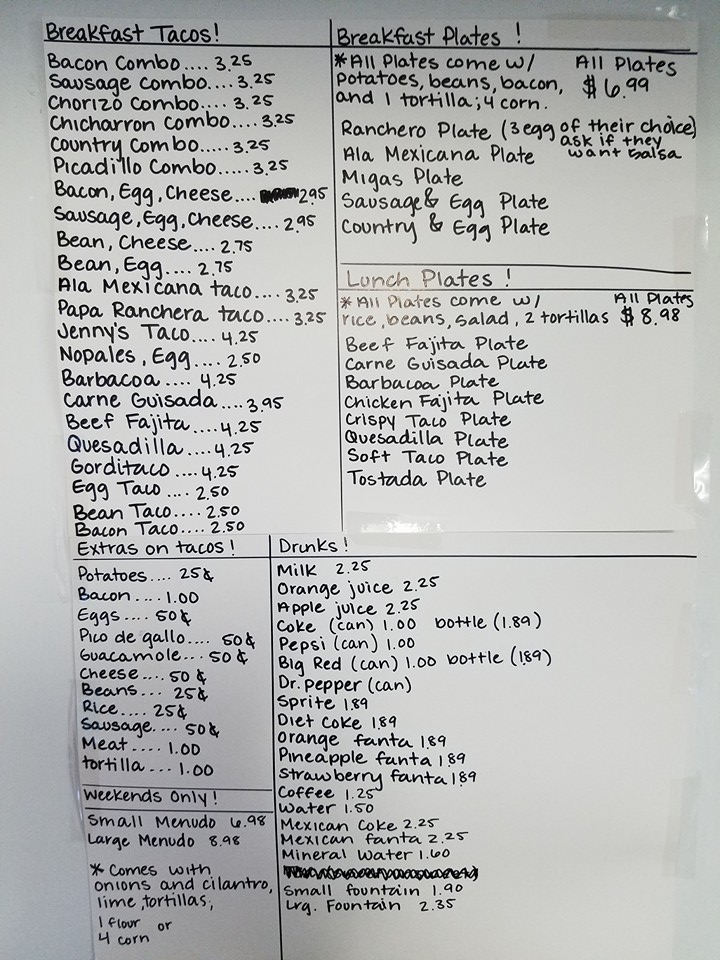 Breakfast Tacos!
Bacon Combo.... 3.25
Sausage Combo.... 3.25
Chorizo Combo.... 3.25
Chicharron Combo.... 3.25
Country Combo..... 3.25
Picadillo Combo..... 3.25
Bacon, Egg, Cheese.... 2.95
Sausage, Egg, Cheese.... 2.95
Bean, Cheese.... 2.75
Bean, Egg.... 2.75
Ala Mexicana taco.... 3.25
Papa Ranchera taco.... 3.25
Jenny's Taco.... 4.25
Nopales, Egg.... 2.50
Barbacoa .... 4.25
Carne Guisada.... 3.95
Beef Fajita....4.25
Quesadilla ....4.25
Gorditaco ....4.25
Egg Taco .... 2.50
Bean Taco.... 2.50
Bacon Taco.... 2.50
Breakfast Plates !
*All Plates come w/
potatoes, beans, bacon,
and 1 tortilla; 4 corn.
All Plates
$6.99
Ranchero Plate (3 egg of their choice)
ask if they
want salsa
Ala Mexicana Plate
Migas Plate
Sausage & Egg Plate
Country & Egg Plate
Lunch Plates !
*All Plates come w/
rice, beans, salad, 2 tortillas
All Plates
$8.98
Beef Fajita Plate
Carne Guisada Plate
Barbacoa Plate
Chicken Fajita Plate
Crispy Taco Plate
Quesadilla Plate
Soft Taco Plate
Tostada Plate
Extras on tacos !
Potatoes.... 25¢
Bacon.... 1.00
Eggs .... 50¢
Pico de gallo.... 50¢
Guacamole... 50¢
Cheese.... 50¢
Beans... 25¢
Rice.... 25¢
Sausage.... 50¢
Meat .... 1.00
tortilla ... 1.00
Weekends Only!
Small Menudo 6.98
Large Menudo 8.98
* Comes with
onions and cilantro,
lime, tortillas,
1 flour or
4 corn
Drunks !
Milk 2.25
Orange juice 2.25
Apple juice 2.25
Coke (can) 1.00 bottle (1.89)
Pepsi (can) 1.00
Big Red (can) 1.00 bottle (1.89)
Dr. pepper (can)
Sprite 1.89
Diet Coke 1.89
Orange fanta 1.89
Pineapple fanta 1.89
Strawberry fanta 1.89
Coffee 1.25
Water 1.50
Mexican Coke 2.25
Mexican fanta 2.25
Mineral Water 1.60
Small fountain 1.90
Lrg. Fountain 2.35